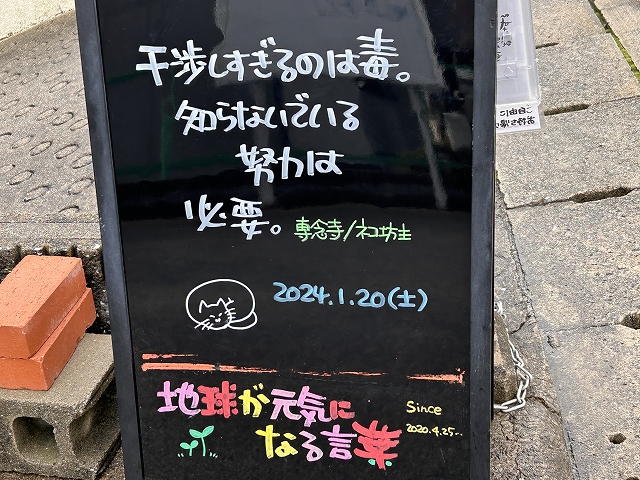 干渉しすぎるのは毒。
知らないでいる
努力は
必要。専念寺/ネコ坊主
2024.1.20(土)
地球が元気に
なる言葉
Since
2020.4.25~
ご自由に